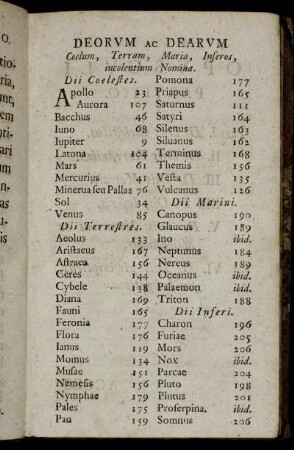 DEORVM AC DEARVM
Coelum, Terram, Maria, Inferos,
incolentium Nomina.
Dii Coelestes.
Apollo 23
Aurora 107
Bacchus 46
Iuno 68
Iupiter 9
Latona 104
Mars 61
Mercurius 41
Minerua seu Pallas 76
Sol 34
Venus 85
Dii Terrestres.
Aeolus 133
Aristaeus 167
Astraea 156
Ceres 144
Cybele 138
Diana 169
Fauni 165
Feronia 177
Flora 176
Ianus 119
Momus 134
Musae 151
Nemesis 156
Nymphae 179
Pales 175
Pan 159
Pomona 177
Priapus 165
Saturnus 111
Satyri 164
Silenus 163
Siluanus 162
Terminus 168
Themis 156
Vesta 135
Vulcanus 126
Dii Marini.
Canopus 190
Glaucus 189
Ino ibid.
Neptunus 184
Nereus 189
Oceanus ibid.
Palaemon ibid.
Triton 188
Dii Inferi.
Charon 196
Furiae 205
Mors 206
Nox ibid.
Parcae 204
Pluto 198
Plutus 201
Proserpina. ibid.
Somnus 206